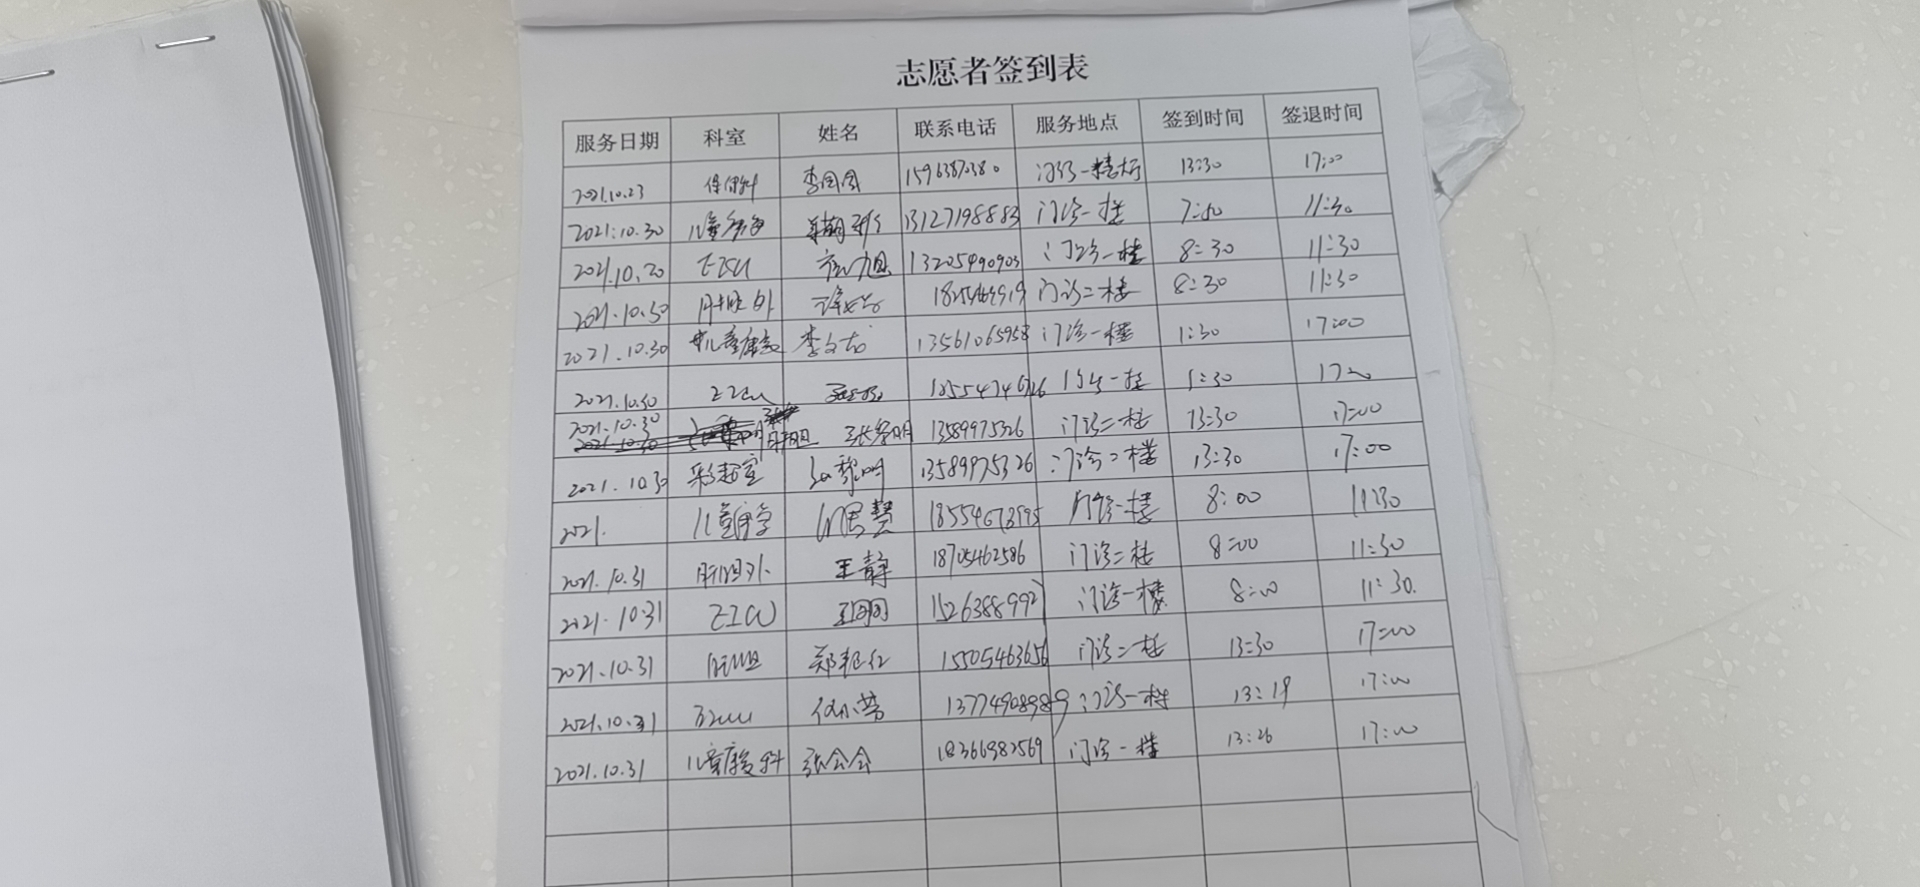 志愿者签到表
服务日期 科室 姓名 联系电话 服务地点 签到时间 签退时间
2021.10.23 保健科 15963872380 门诊一楼大厅 13:30 17:00
2021.10.30 13127198883 门诊一楼 7:50 11:30
2021.10.30 EICU 13205490903 门诊一楼 8:30 11:30
2021.10.30 肝胆外 门诊二楼 8:30 11:30
2021.10.30 儿童康复 李文古 13561065958 门诊一楼 1:30 17:00
2021.10.30 EICU 门诊一楼 1:30 17:00
2021.10.30 肝胆 张黎明 13589975326 门诊二楼 13:30 17:00
2021.10.30 彩超室 张黎明 13589975326 门诊二楼 13:30 17:00
2021. 儿童保健 门诊一楼 8:00 11:30
2021.10.31 肝胆外 王静 18705462586 门诊二楼 8:00 11:30
2021.10.31 EICU 15263889927 门诊一楼 8:00 11:30.
2021.10.31 肝胆 郑艳红 15505463656 门诊二楼 13:30 17:00
2021.10.31 13774908989 门诊一楼 13:19 17:00
2021.10.31 儿童康复科 张会会 18366982569 门诊一楼 13:26 17:00